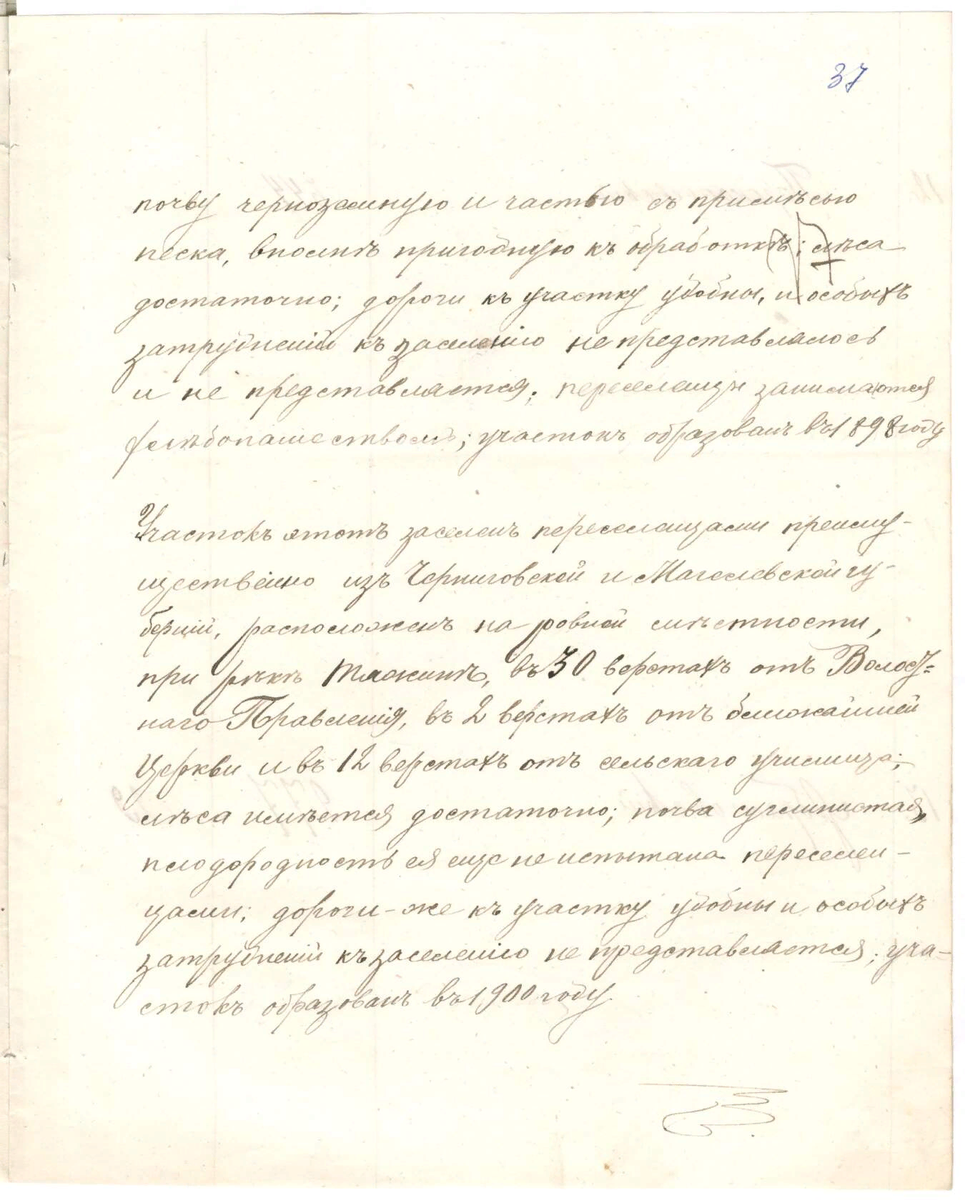 37
почву черноземную и частью съ примѣсью
песка, вполнѣ пригодную къ обработкѣ; лѣса
достаточно; дороги къ участку удобны, и особыхъ
затрудненій къ заселенію не представлялось
и не представляется; переселенцы занимаются
хлѣбопашествомъ; участокъ образованъ въ 1898 году
Участокъ этотъ заселенъ переселенцами преиму-
щественно изъ Черниговской и Магелевской гу-
берній, расположенъ на ровной мѣстности,
при рѣкѣ Тяжинѣ, въ 30 верстахъ отъ Волост-
наго Правленія, въ 2 верстахъ отъ ближайшей
Церкви и въ 12 верстахъ отъ сельскаго училища;
лѣса имѣется достаточно; почва суглинистая,
плодородность ея еще не испытана переселен-
цами; дороги-же къ участку удобны и особыхъ
затрудненій къ заселенію не представляется; уча-
стокъ образованъ въ 1900 году